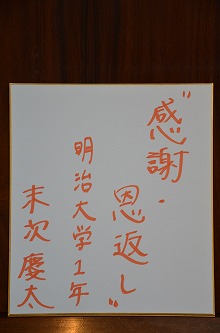 “感謝・
恩返し”
明治大学1年
末次慶太